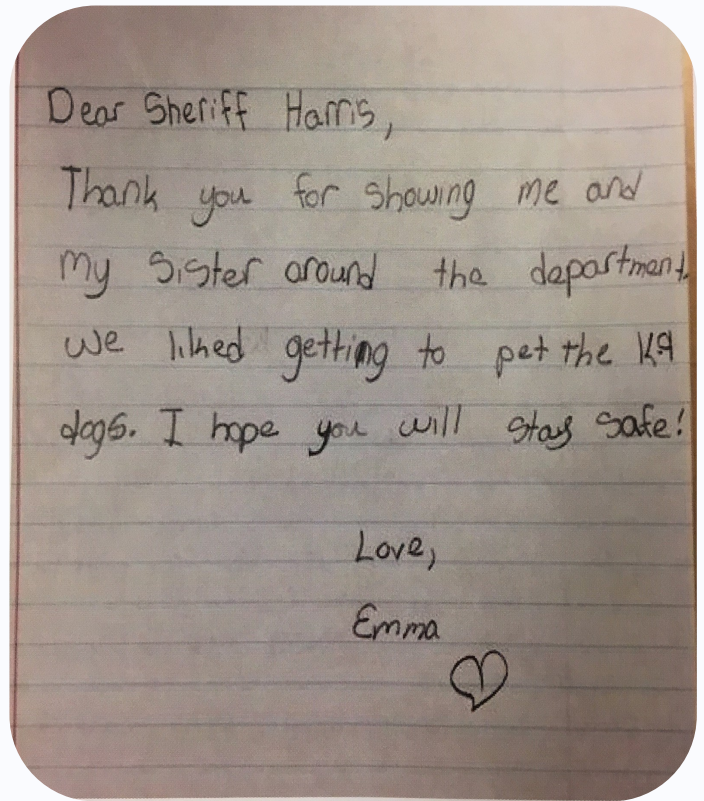 Dear Sheriff Harris,
Thank you for showing me and
my sister around the department.
We liked getting to pet the K9
dogs. I hope you will stay safe!
Love,
Emma